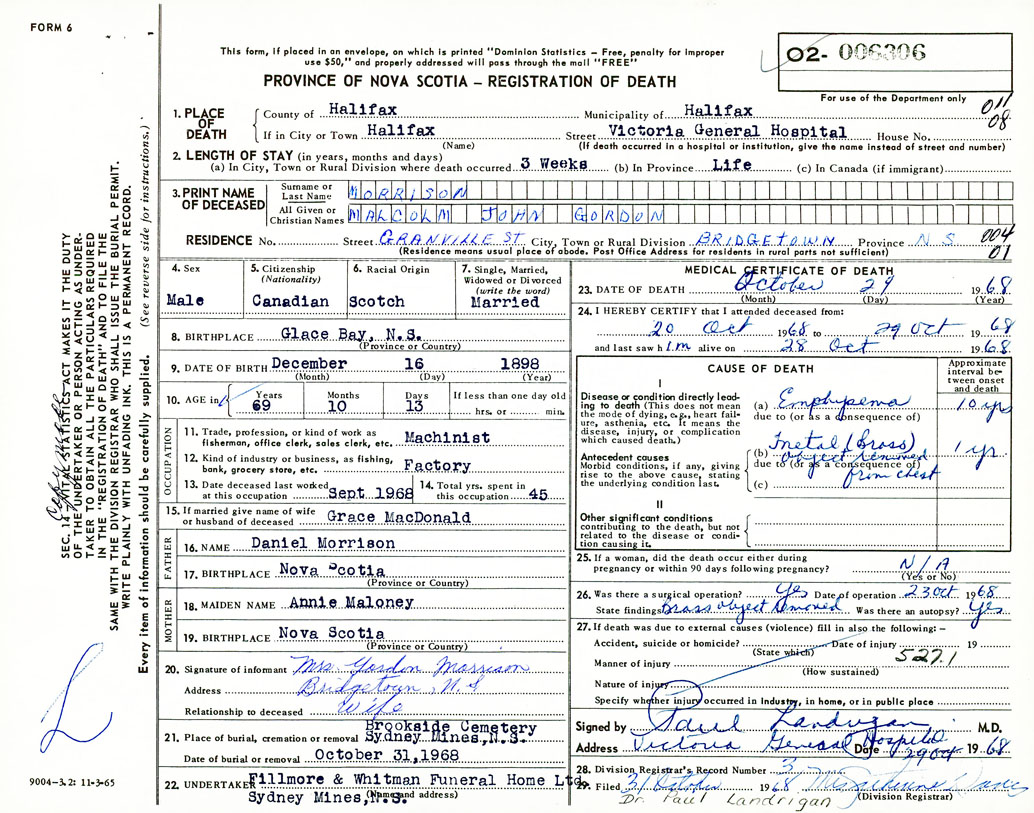 FORM 6
This form, if placed in an envelope, on which is printed "Dominion Statistics – Free, penalty for improper
use $50," and properly addressed will pass through the mail "FREE"
PROVINCE OF NOVA SCOTIA – REGISTRATION OF DEATH
02- 006306
For use of the Department only
011
08
1. PLACE OF DEATH
County of Halifax Municipality of Halifax
If in City or Town Halifax Street Victoria General Hospital House No.
(Name) (If death occurred in a hospital or institution, give the name instead of street and number)
2. LENGTH OF STAY (in years, months and days)
(a) In City, Town or Rural Division where death occurred 3 Weeks (b) In Province Life (c) In Canada (if immigrant)
3. PRINT NAME OF DECEASED
Surname or Last Name MORRISON
All Given or Christian Names MALCOLM JOHN GORDON
RESIDENCE No. Street GRANVILLE ST City, Town or Rural Division BRIDGETOWN Province N S
004
01
(Residence means usual place of abode. Post Office Address for residents in rural parts not sufficient)
4. Sex
Male
5. Citizenship
(Nationality)
Canadian
6. Racial Origin
Scotch
7. Single, Married,
Widowed or Divorced
(write the word)
Married
8. BIRTHPLACE Glace Bay, N.S.
(Province or Country)
9. DATE OF BIRTH December 16 1898
(Month) (Day) (Year)
10. AGE in
Years Months Days If less than one day old
69 10 13 hrs. or min.
OCCUPATION
11. Trade, profession, or kind of work as
fisherman, office clerk, sales clerk, etc. Machinist
12. Kind of industry or business, as fishing,
bank, grocery store, etc. Factory
13. Date deceased last worked
at this occupation Sept 1968
14. Total yrs. spent in
this occupation 45
15. If married give name of wife
or husband of deceased Grace MacDonald
FATHER
16. NAME Daniel Morrison
17. BIRTHPLACE Nova Scotia
(Province or Country)
MOTHER
18. MAIDEN NAME Annie Maloney
19. BIRTHPLACE Nova Scotia
(Province or Country)
20. Signature of informant Mrs Gordon Morrison
Address Bridgetown, N.S
Relationship to deceased Wife
21. Place of burial, cremation or removal Brookside Cemetery
Sydney Mines, N.S.
Date of burial or removal October 31, 1968
22. UNDERTAKER Fillmore & Whitman Funeral Home Ltd.
Sydney Mines, N.S.
(Name and address)
MEDICAL CERTIFICATE OF DEATH
23. DATE OF DEATH October 29 1968
(Month) (Day) (Year)
24. I HEREBY CERTIFY that I attended deceased from:
20 Oct 1968 to 29 Oct 1968
and last saw him alive on 28 Oct 1968
CAUSE OF DEATH
Approximate
interval be-
tween onset
and death
I
Disease or condition directly lead-
ing to death (This does not mean
the mode of dying, e.g., heart fail-
ure, asthenia, etc. It means the
disease, injury, or complication
which caused death.)
(a) Emphysema 10 yrs
due to (or as a consequence of)
Antecedent causes
Morbid conditions, if any, giving
rise to the above cause, stating
the underlying condition last.
(b) metal (Brass) 1 yr
object removed
due to (or as a consequence of)
from chest
(c)
II
Other significant conditions
contributing to the death, but not
related to the disease or condi-
tion causing it.
25. If a woman, did the death occur either during
pregnancy or within 90 days following pregnancy? N/A
(Yes or No)
26. Was there a surgical operation? Yes Date of operation 23 Oct 1968
State findings Brass object removed Was there an autopsy? Yes
27. If death was due to external causes (violence) fill in also the following: –
Accident, suicide or homicide? Date of injury 19
(State which)
527.1
Manner of injury
(How sustained)
Nature of injury
Specify whether injury occurred in Industry, in home, or in public place
Signed by Paul Landrigan M.D.
Address Victoria General Hospital Date 29 Oct 1968
28. Division Registrar's Record Number 3
29. Filed 31 October 1968
(Division Registrar)
Dr. Paul Landrigan
SEC. 14 – VITAL STATISTICS ACT MAKES IT THE DUTY
OF THE UNDERTAKER OR PERSON ACTING AS UNDER-
TAKER TO OBTAIN ALL THE PARTICULARS REQUIRED
IN THE "REGISTRATION OF DEATH" AND TO FILE THE
SAME WITH THE DIVISION REGISTRAR WHO SHALL ISSUE THE BURIAL PERMIT.
WRITE PLAINLY WITH UNFADING INK. THIS IS A PERMANENT RECORD.
Every item of information should be carefully supplied. (See reverse side for instructions.)
9004–3.2: 11-3-65